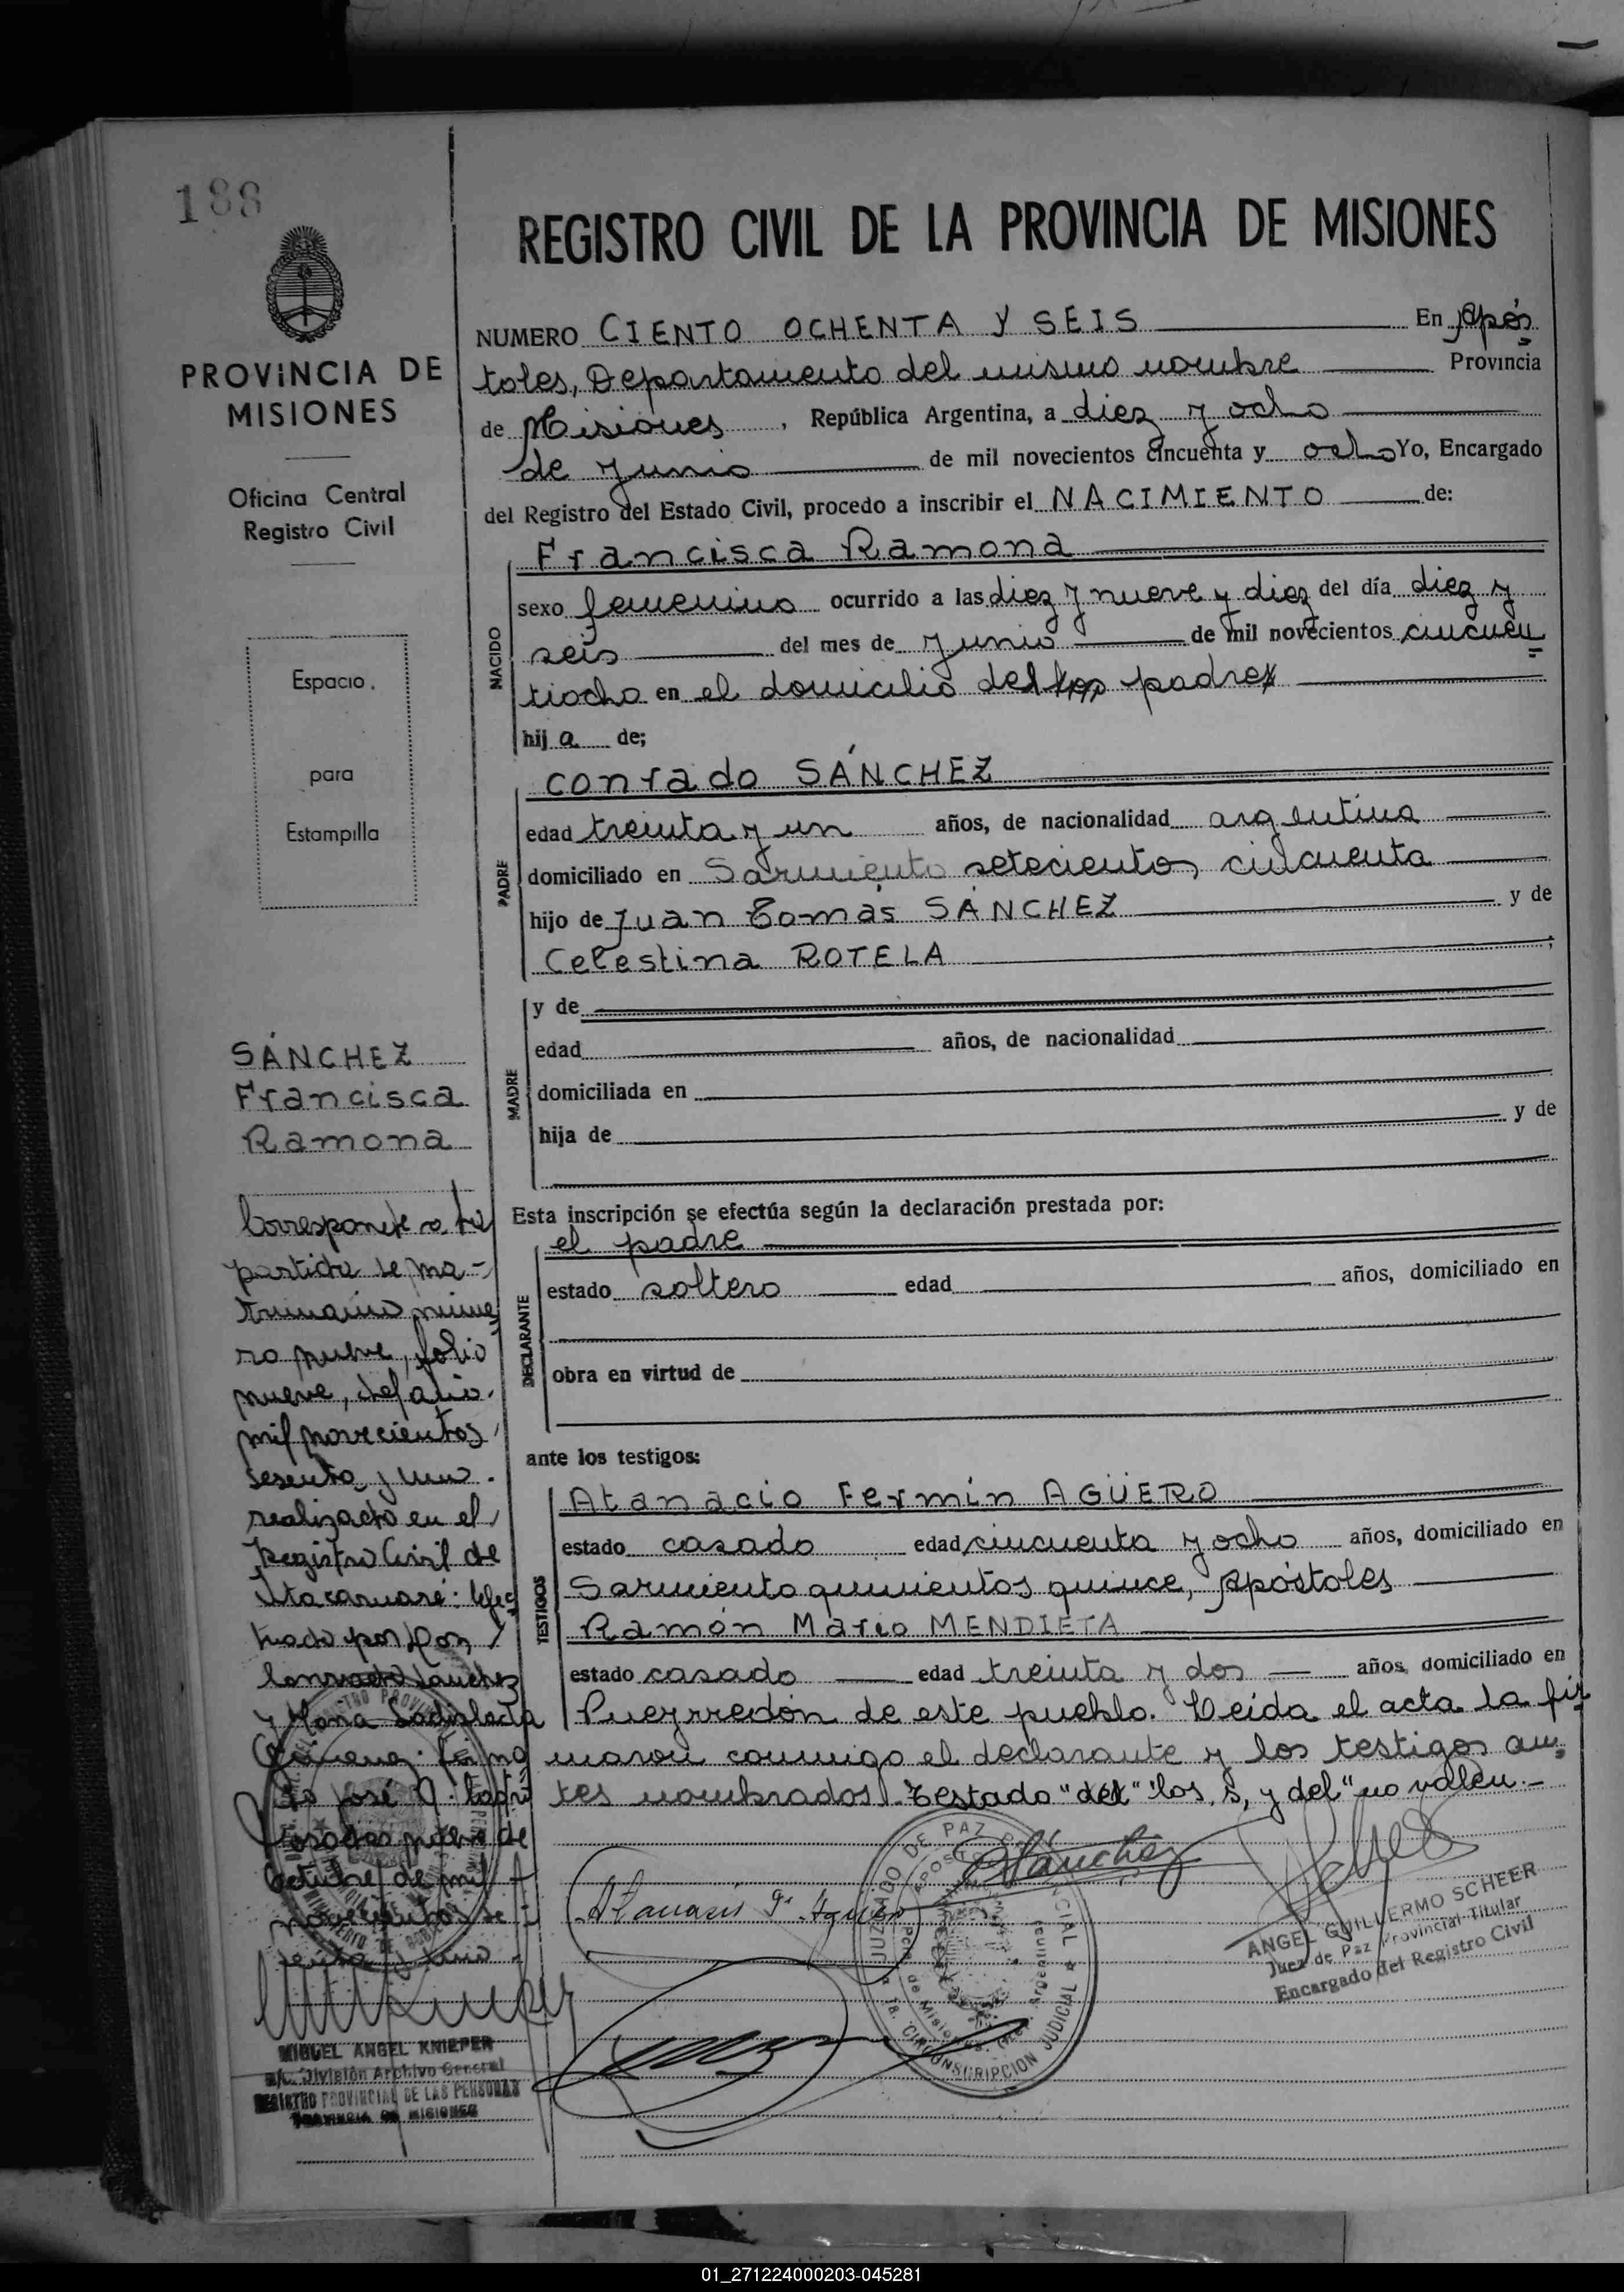 188
REGISTRO CIVIL DE LA PROVINCIA DE MISIONES
PROVINCIA DE
MISIONES
Oficina Central
Registro Civil
Espacio
para
Estampilla
NUMERO CIENTO OCHENTA Y SEIS En Após
toles, Departamento del mismo nombre Provincia
de Misiones, República Argentina, a diez y ocho
de junio de mil novecientos cincuenta y ocho Yo, Encargado
del Registro del Estado Civil, procedo a inscribir el NACIMIENTO de:
NACIDO
Francisca Ramona
sexo femenino ocurrido a las diez y nueve y diez del día diez y
seis del mes de junio de mil novecientos cincuen
tiocho en el domicilio del padre
hija de;
PADRE
Conrado SÁNCHEZ
edad treinta y un años, de nacionalidad argentina
domiciliado en Sarmiento setecientos cincuenta
hijo de Juan Tomás SÁNCHEZ y de
Celestina ROTELA;
MADRE
y de
edad años, de nacionalidad
domiciliada en
hija de y de
Esta inscripción se efectúa según la declaración prestada por:
DECLARANTE
el padre
estado soltero edad años, domiciliado en
obra en virtud de
ante los testigos:
TESTIGOS
Atanacio Fermín AGÜERO
estado casado edad cincuenta y ocho años, domiciliado en
Sarmiento quinientos quince, Apóstoles
Ramón Mario MENDIETA
estado casado edad treinta y dos años, domiciliado en
Pueyrredón de este pueblo. Leída el acta la fir
maron conmigo el declarante y los testigos an
tes nombrados. Testado "del" "los, s, y del" no valen.-
SÁNCHEZ
Francisca
Ramona
Corresponde a la
partida de ma-
trimonio núme
ro nueve, folio
nueve, del año
mil novecientos
sesenta y uno.
realizado en el
Registro Civil de
Itacaruaré: efec
tuado por Don
Conrado Sánchez
y María Ladislada
José
Posadas de
Octubre de mil
novecientos se
senta y uno.
MIGUEL ANGEL KNIEPER
a/c. División Archivo General
REGISTRO PROVINCIAL DE LAS PERSONAS
PROVINCIA DE MISIONES
Sánchez
JUZGADO DE PAZ
APOSTOLES
Pcia. de Misiones
Argentina
CIRCUNSCRIPCION JUDICIAL
ANGEL GUILLERMO SCHEER
Juez de Paz Provincial Titular
Encargado del Registro Civil
01_271224000203-045281